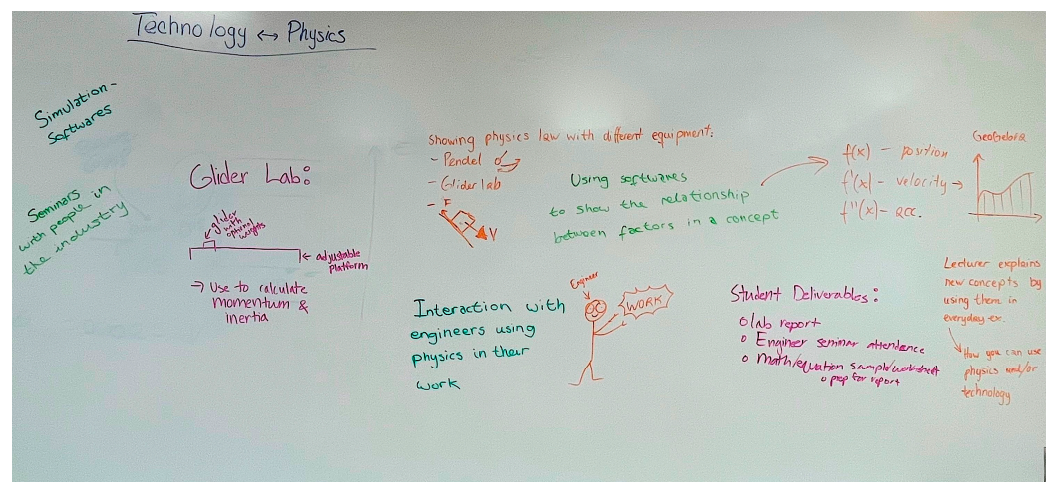 Technology ↔ Physics
Simulation-
Softwares
Seminars
with people in
the industry
Glider Lab:
glider
with
optional
weights
← adjustable
platform
→ Use to calculate
momentum &
inertia
Showing physics law with different equipment:
- Pendel
- Glider lab
- F
V
Using softwares
to show the relationship
between factors in a concept
f(x) - position
f'(x) - velocity →
f''(x) - acc.
GeoGebra
Interaction with
engineers using
physics in their
work
Engineer
WORK
Student Deliverables:
o lab report
o Engineer seminar attendance
o Math/equation sample/worksheet
o prep for report
Lecturer explains
new concepts by
using them in
everyday ex.
How you can use
physics and/or
technology